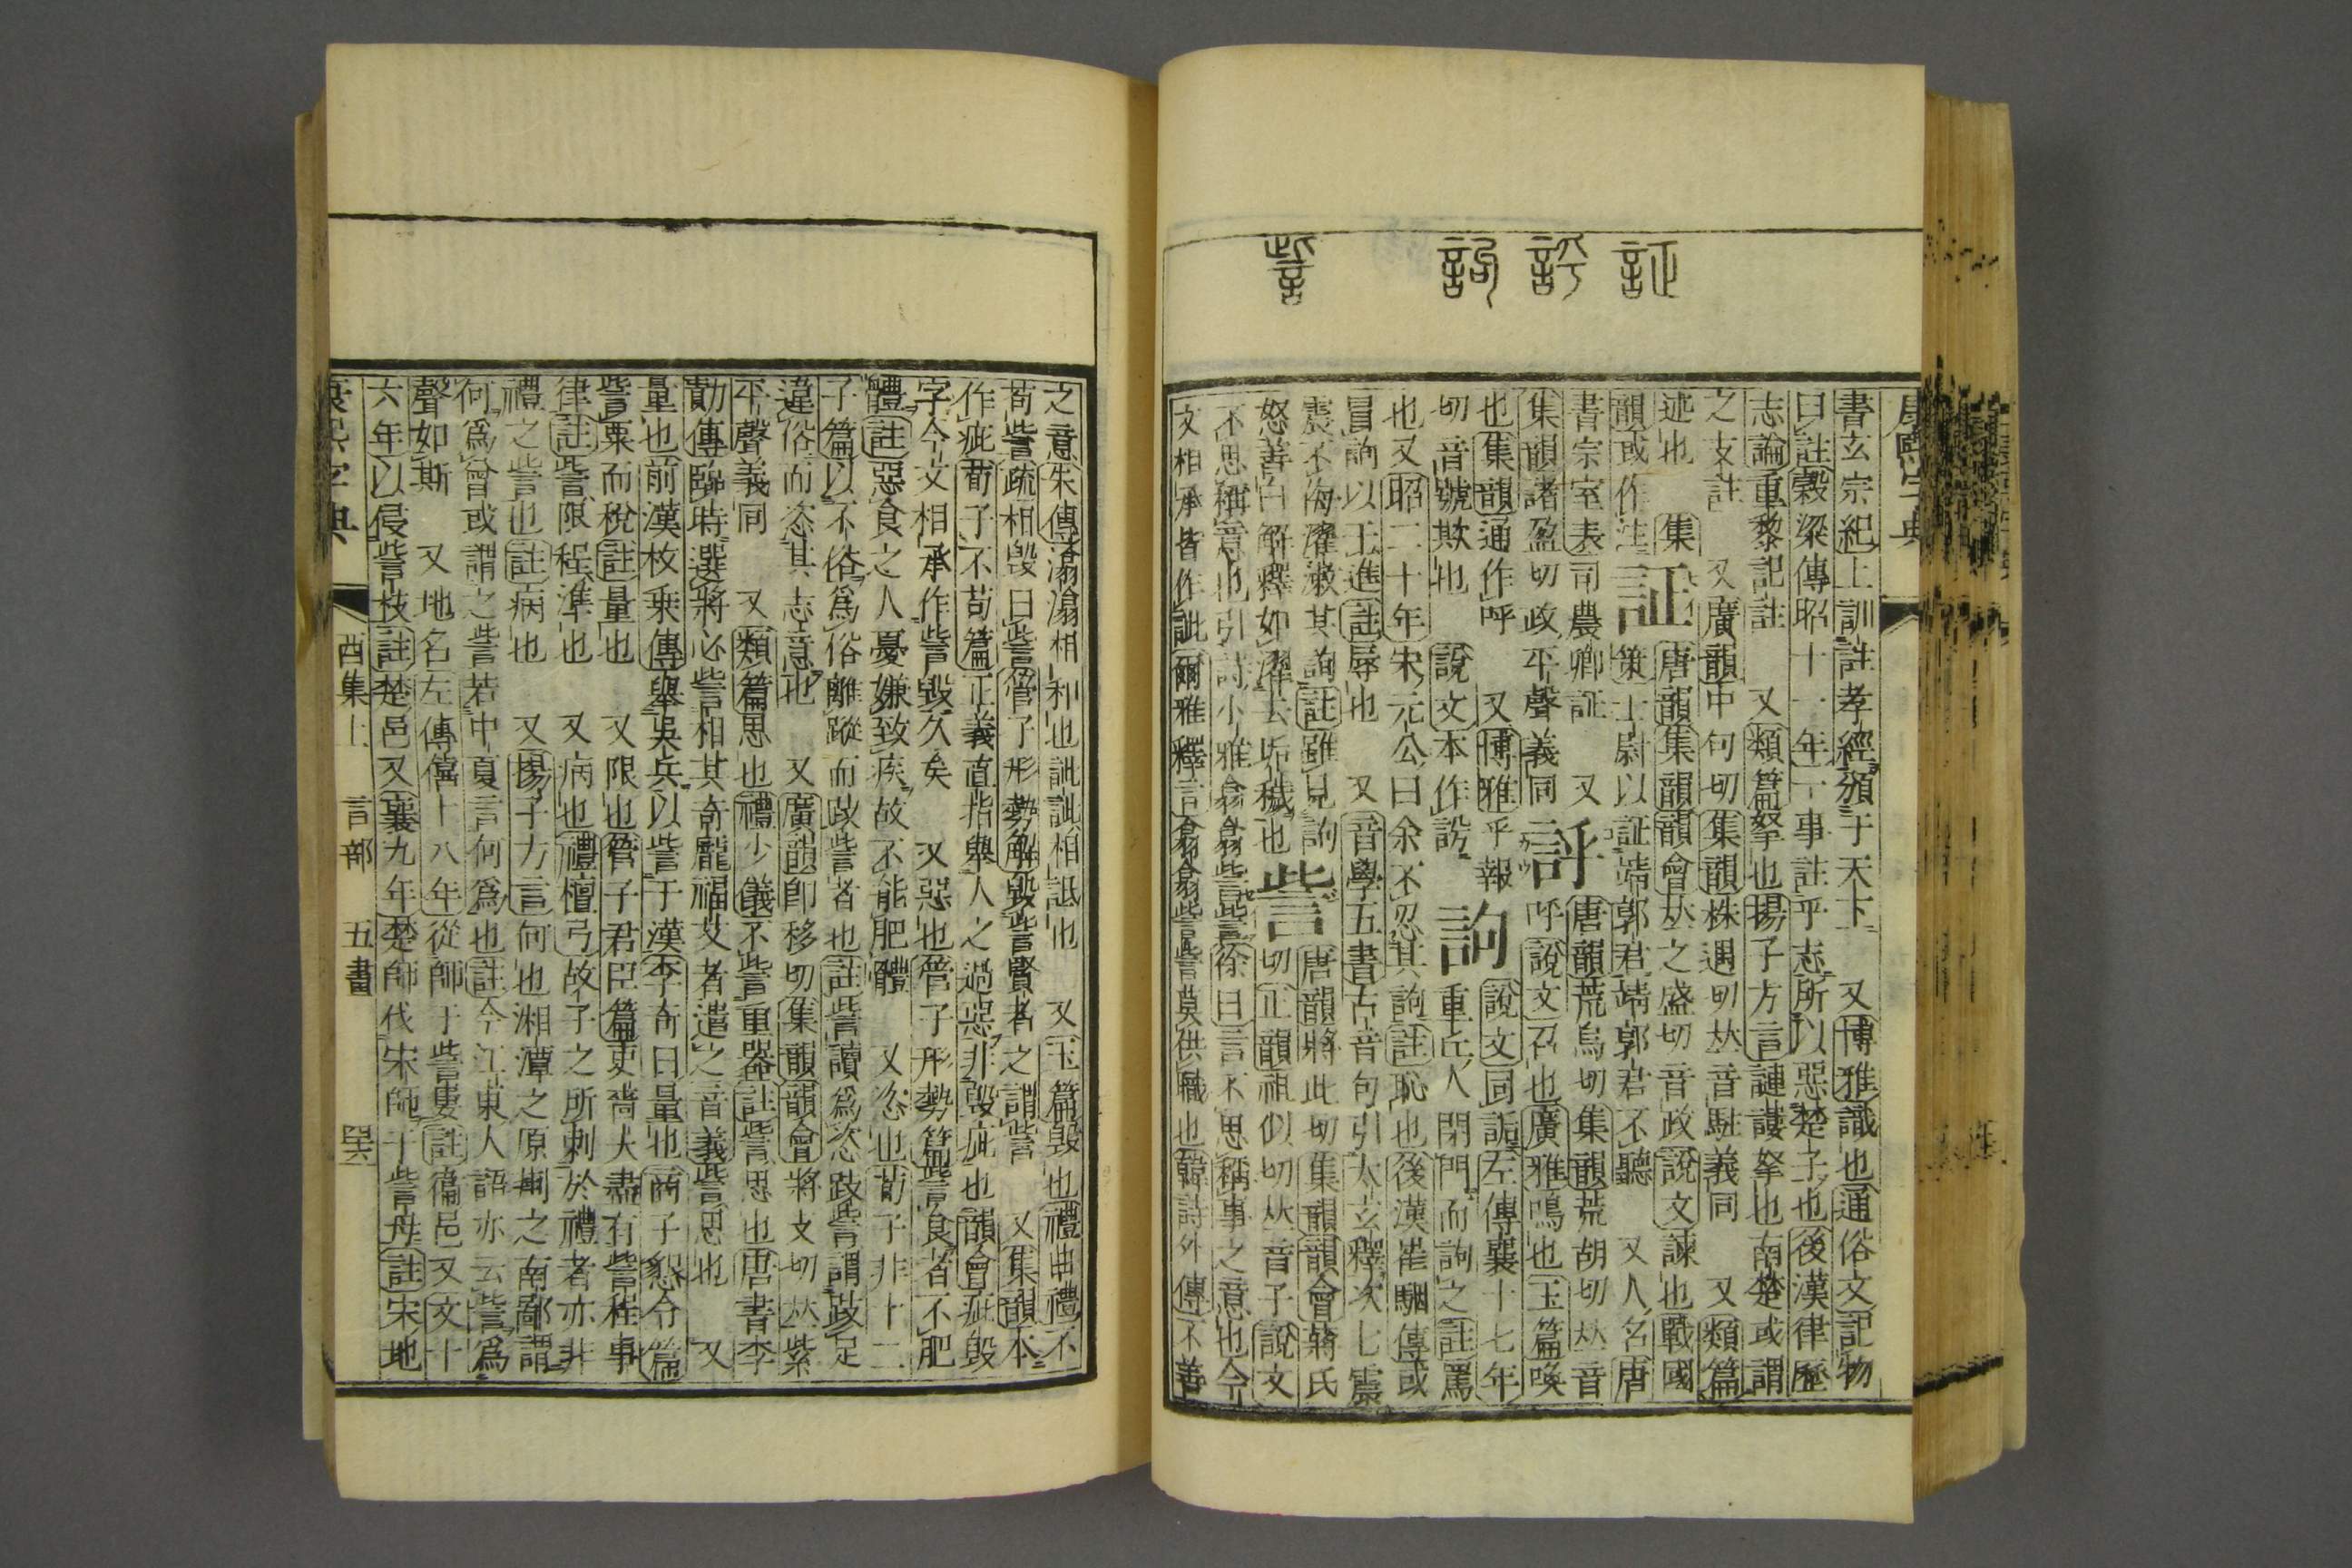 証
訏
訽
訾
康熙字典
書玄宗紀上訓註孝經頒于天下 又博雅識也通俗文記物
曰註穀梁傳昭十一年一事註乎志所以惡楚子也後漢律歷
志論重黎記註 又類篇拏也揚子方言謰謱拏也南楚或謂
之支註 又廣韻中句切集韻株遇切𠀤音駐義同 又類篇
迹也集韻或作注 証 唐韻集韻韻會𠀤之盛切音政說文諫也戰國
策士尉以証靖郭君靖郭君不聽 又人名唐
書宗室表司農卿証 又
集韻諸盈切政平聲義同 評 唐韻荒烏切集韻荒胡切𠀤音
呼說文召也廣雅鳴也玉篇喚
也集韻通作呼 又博雅乎報
切音號欺也 說文本作䛫 訽 說文同詬左傳襄十七年
重丘人閉門而訽之註罵
也又昭二十年宋元公曰余不忍其訽註恥也後漢崔駰傳或
冒訽以干進註辱也 又音學五書古音句引太玄釋次七震
震不侮濯漱其訽註雖見訽
怒善自解釋如濯去垢穢也 訾 唐韻將此切集韻韻會蔣氏
切正韻祖似切𠀤音子說文
不思稱意也引詩小雅翕翕訾訾徐曰言不思稱事之意也今
文相承皆作訿爾雅釋言翕翕訾訾莫供職也韓詩外傳不善
之意朱傳潝潝相和也訿訿相詆也 又玉篇毀也禮曲禮不
苟訾疏相毀曰訾管子形勢解毀訾賢者之謂訾 又集韻本
作疵荀子不苟篇正義直指舉人之過惡非毀疵也韻會疵毀
字今文相承作訾毀久矣 又惡也管子形勢篇訾食者不肥
體註惡食之人憂嫌致疾故不能肥體 又恣也荀子非十二
子篇以不俗爲俗離蹤而跂訾者也註訾讀爲恣跂訾謂跂足
違俗而恣其志意也 又廣韻卽移切集韻韻會將支切𠀤紫
平聲義同 又類篇思也禮少儀不訾重器註訾思也唐書李
勣傳臨時選將必訾相其奇龐福艾者遣之音義訾思也 又
量也前漢枚乘傳舉吳兵以訾于漢李奇曰量也商子懇令篇
訾粟而稅註量也 又限也管子君臣篇吏嗇夫盡有訾程事
律註訾限程準也 又病也禮檀弓故子之所刺於禮者亦非
禮之訾也註病也 又揚子方言何也湘潭之原荆之南鄙謂
何爲曾或謂之訾若中夏言何爲也註今江東人語亦云訾爲
聲如斯 又地名左傳僖十八年從師于訾婁註衞邑又文十
六年以侵訾枝註楚邑又襄九年楚師伐宋師于訾母註宋地
康熙字典 酉集上 言部 五畫 哭